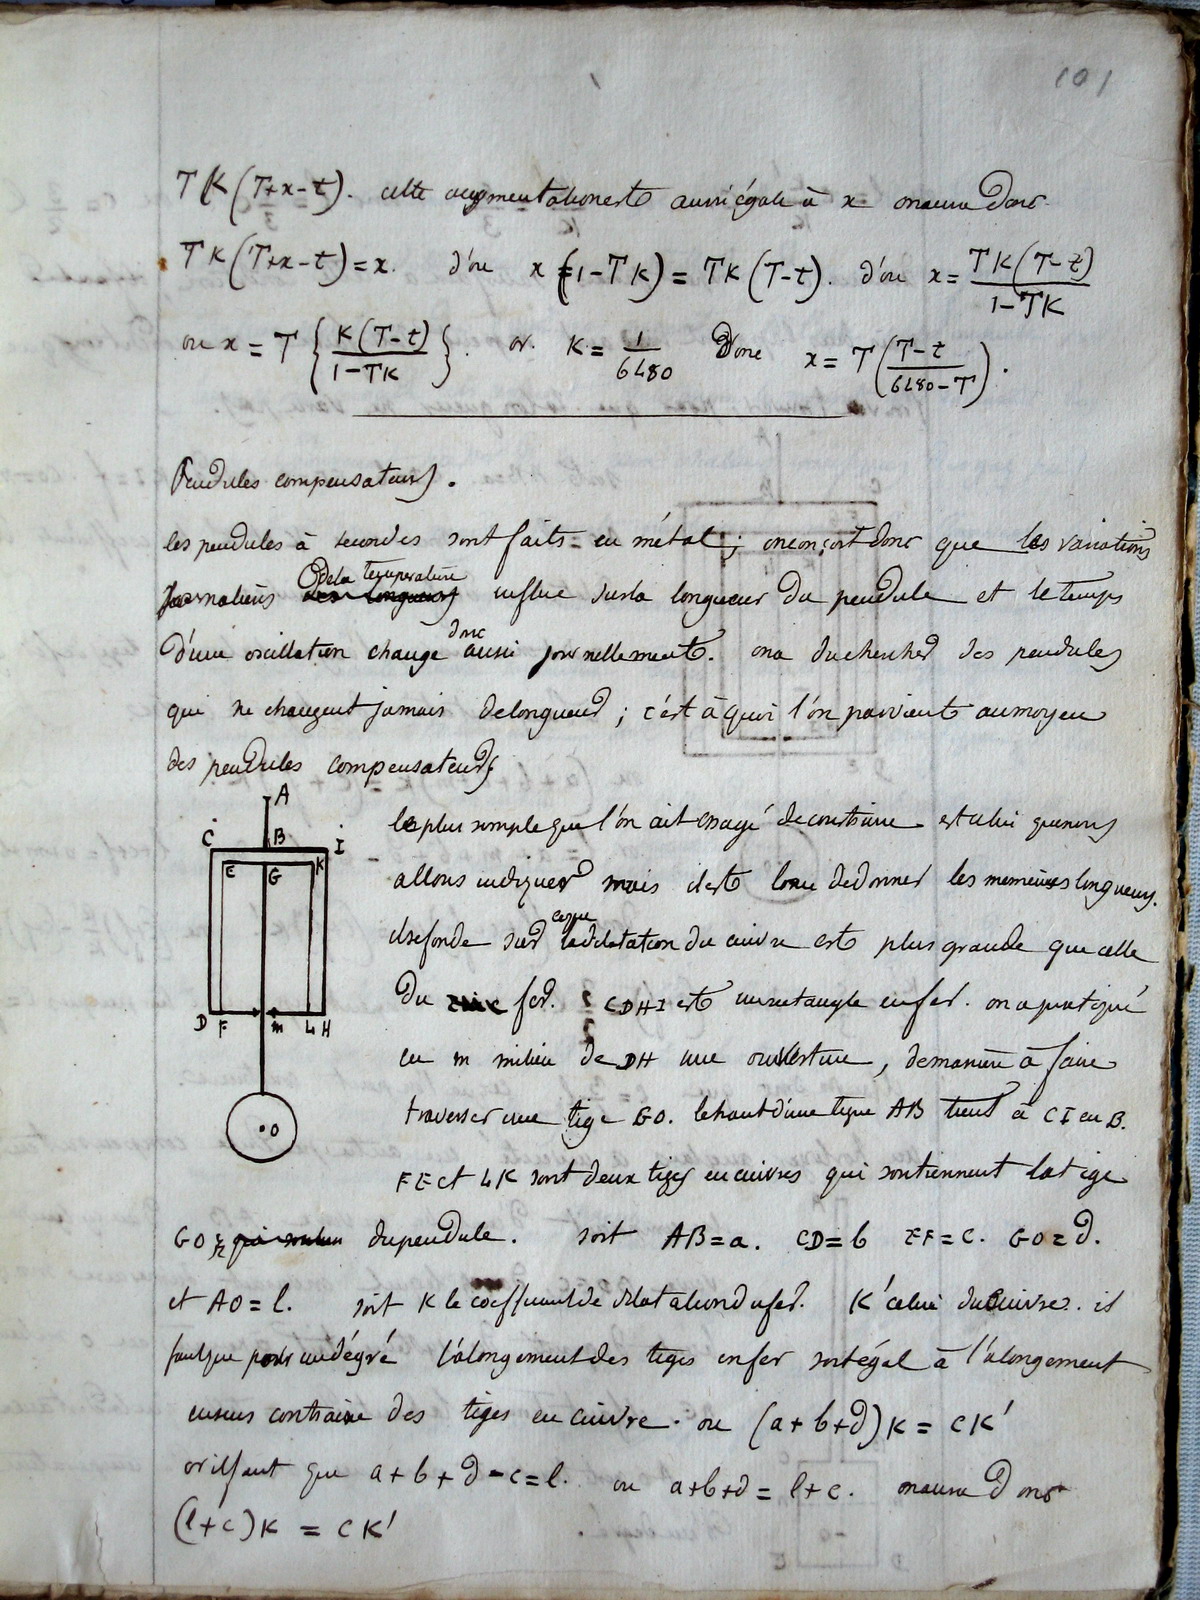 101
TK(T+x-t). cette augmentation est aussi égale à x on aura donc
TK(T+x-t)=x. d'où x(1-TK) = TK(T-t). d'où x = TK(T-t)/1-TK
ou x = T{K(T-t)/1-TK}. or K = 1/6480 Donc x = T(T-t/6480-T).
Pendules compensateurs.
les pendules à secondes sont faits en métal; on conçoit donc que les variations
journalières de la température influe sur la longueur du pendule et le temps
d'une oscillation change donc aussi journellement. on a du chercher des pendules
qui ne changent jamais de longueur; c'est à quoi l'on parvient au moyen
des pendules compensateurs
A
C B I
E G K
D F m L H
O
le plus simple que l'on ait essayé de construire est celui que nous
allons indiquer mais il est loin de donner les memes longueurs.
il se fonde sur ce que la dilatation du cuivre est plus grande que celle
du zinc fer. CDHI est un rectangle en fer. on a pratiqué
en m milieu de DH une ouverture, de manière à faire
traverser une tige GO. le haut d'une tige AB tient à CI en B.
FE et LK sont deux tiges en cuivres qui soutiennent la tige
GO du pendule. soit AB=a. CD=b EF=c. GO=d.
et AO=l. soit K le coefficient de dilatation du fer. K' celui du cuivre. il
faut que pour un dégré l'alongement des tiges en fer soit égal à l'alongement
en sens contraire des tiges en cuivre. ou (a+b+d)K = cK'
or il faut que a+b+d-c=l. ou a+b+d = l+c. on aura donc
(l+c)K = cK'